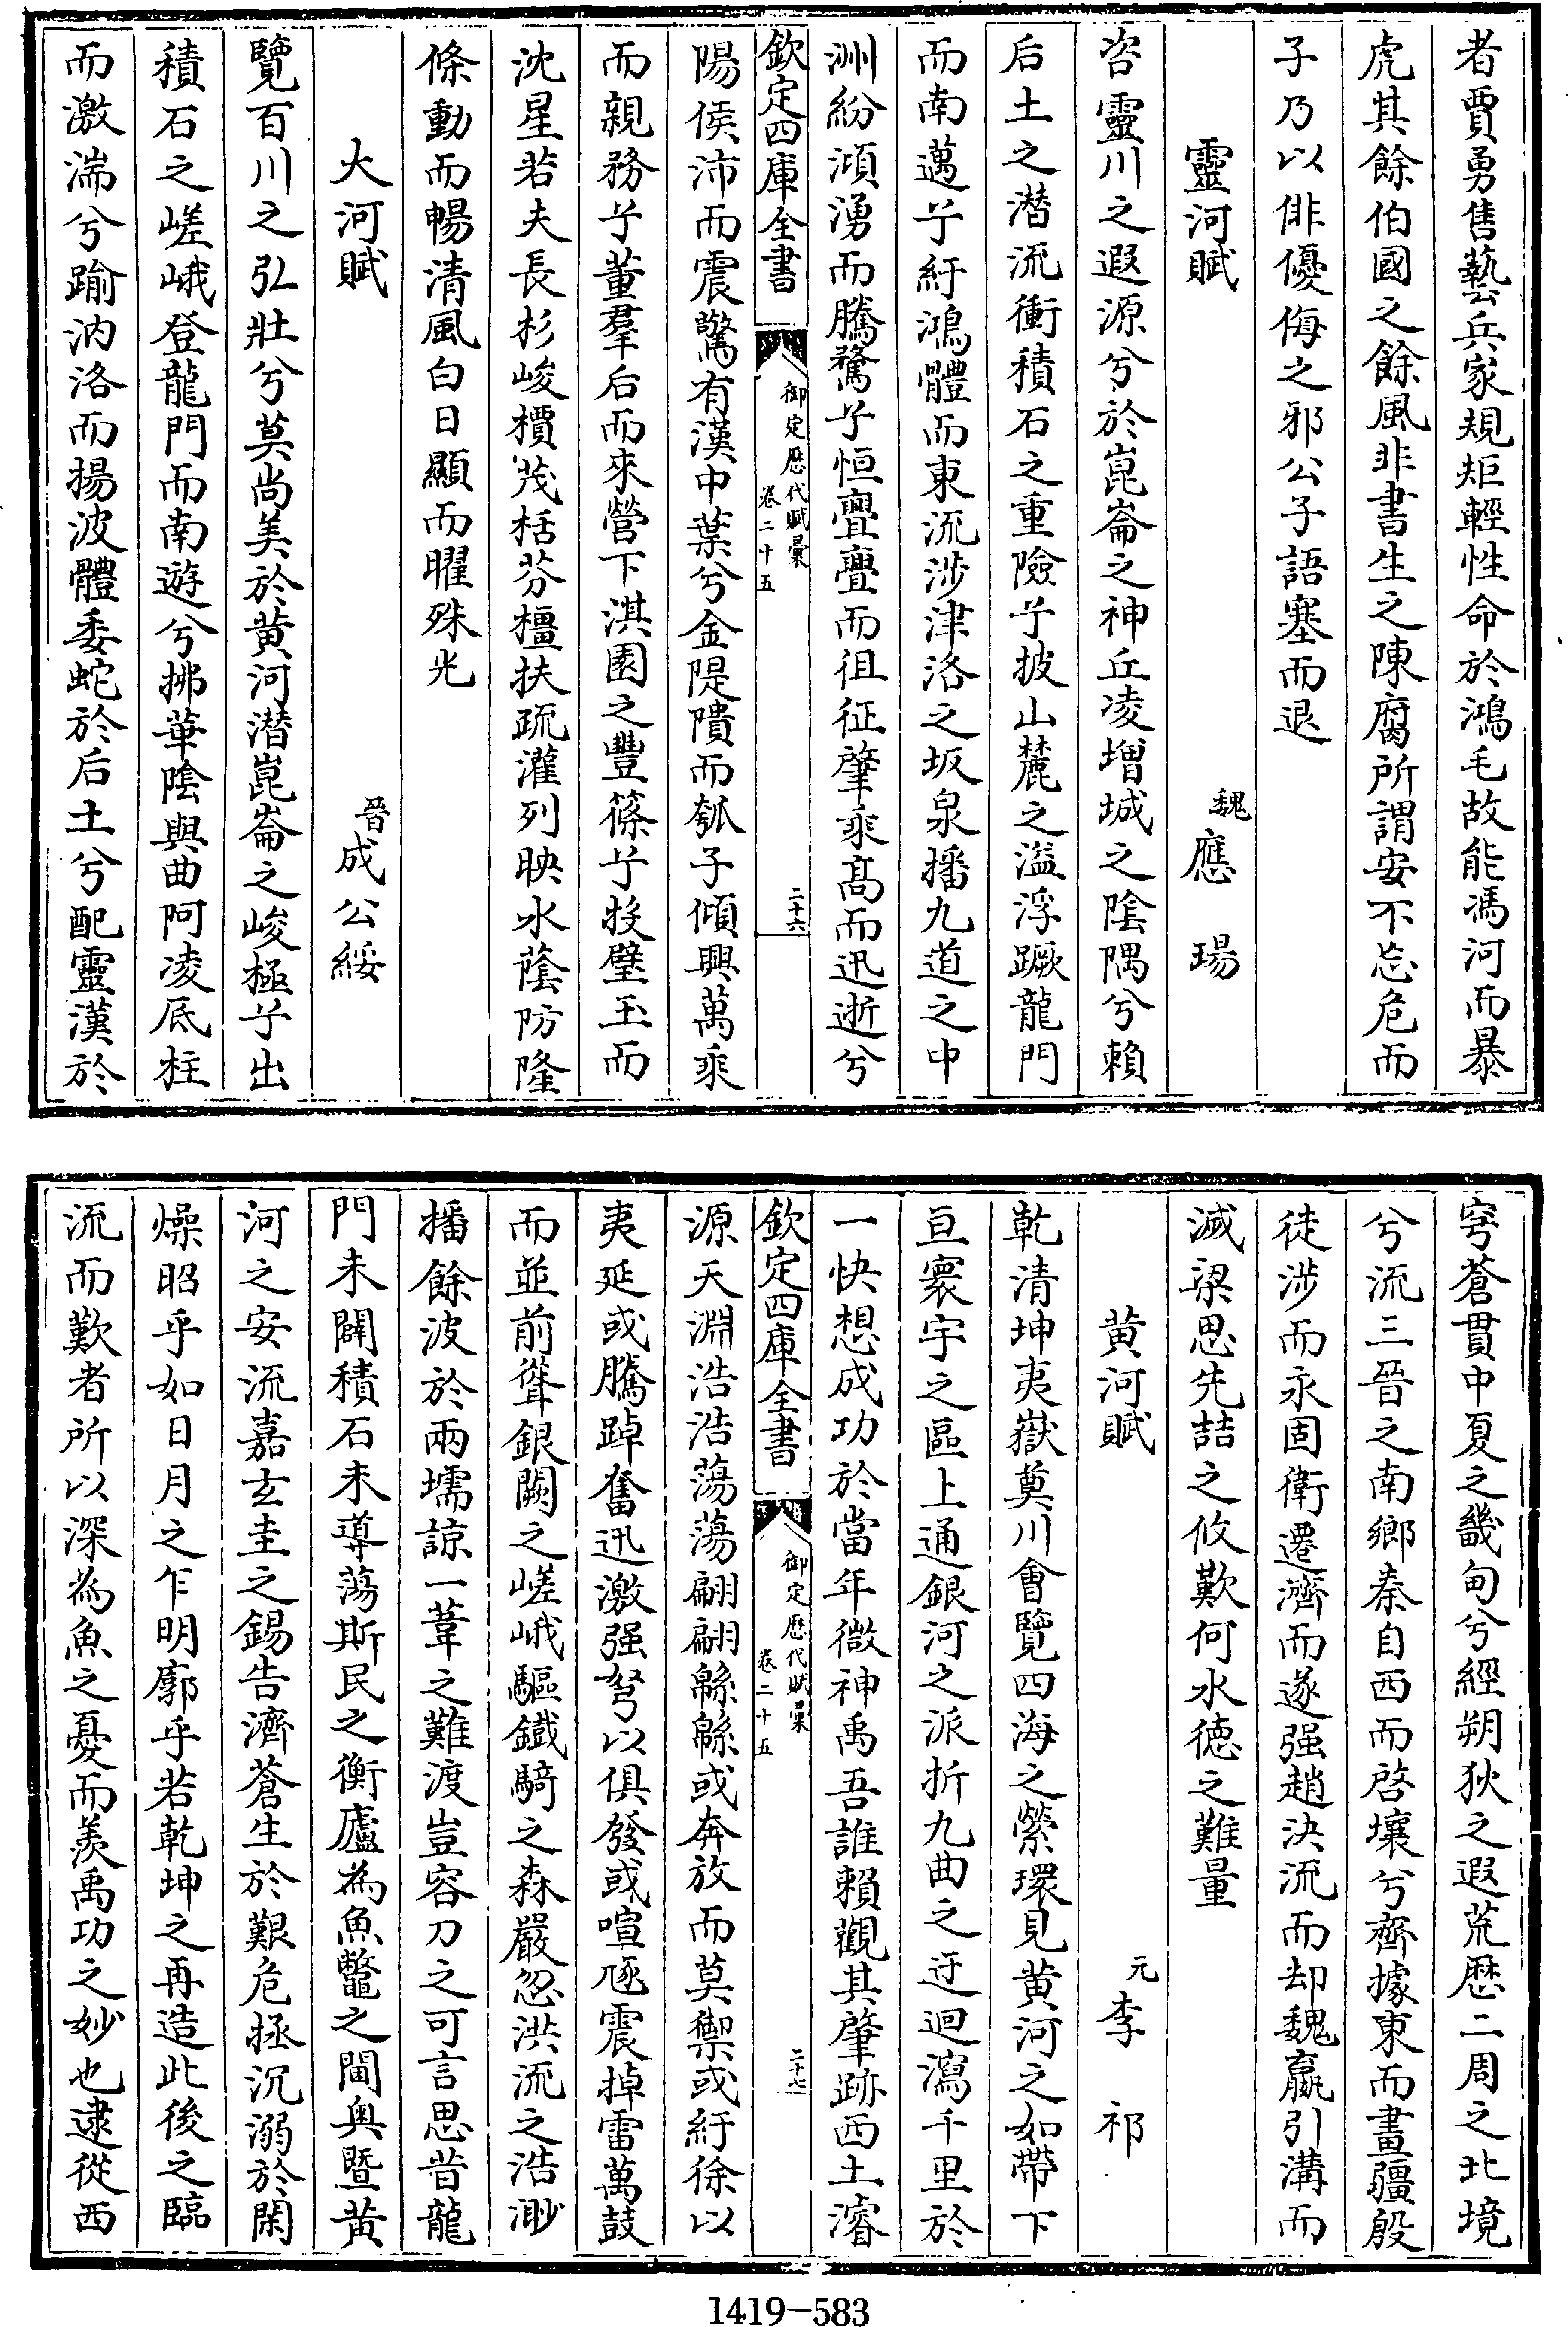 者賈勇售藝兵家規矩輕性命於鴻毛故能馮河而暴
虎其餘伯國之餘風非書生之陳腐所謂安不忘危而
子乃以俳優侮之邪公子語塞而退
靈河賦
魏應瑒
咨靈川之遐源兮於崑崙之神丘凌增城之陰隅兮賴
后土之潜流衝積石之重險兮披山麓之溢浮蹶龍門
而南邁兮紆鴻體而東流涉津洛之坂泉播九道之中
洲紛澒湧而騰騖兮恒亹亹而徂征肇乘高而迅逝兮
欽定四庫全書
御定歷代賦彙
卷二十五
二十六
陽侯沛而震驚有漢中葉兮金隄隤而瓠子傾興萬乘
而親務兮董羣后而來營下淇園之豐篠兮投璧玉而
沈星若夫長杉峻檟茂栝芬橿扶疏灌列映水蔭防隆
條動而暢清風白日顯而曜殊光
大河賦
晉成公綏
覽百川之弘壯兮莫尚美於黄河潜崑崙之峻極兮出
積石之嵯峨登龍門而南遊兮拂華陰與曲阿凌厎柱
而激湍兮踰汭洛而揚波體委蛇於后土兮配靈漢於
穹蒼貫中夏之畿甸兮經朔狄之遐荒歷二周之北境
兮流三晉之南鄉秦自西而啓壤兮齊據東而畫疆殷
徒涉而永固衛遷濟而遂强趙決流而却魏嬴引溝而
滅梁思先喆之攸歎何水德之難量
黄河賦
元李祁
乾清坤夷嶽奠川會覽四海之縈環見黄河之如帶下
亘寰宇之區上通銀河之派折九曲之迂迴瀉千里於
一快想成功於當年微神禹吾誰賴觀其肇跡西土濬
欽定四庫全書
御定歷代賦彙
卷二十五
二十七
源天淵浩浩蕩蕩翩翩緜緜或奔放而莫禦或紆徐以
夷延或騰踔奮迅激强弩以俱發或喧豗震掉雷萬鼓
而並前聳銀闕之嵯峨驅鐵騎之森嚴忽洪流之浩渺
播餘波於兩壖諒一葦之難渡豈容刀之可言思昔龍
門未闢積石未導蕩斯民之衡廬為魚鼈之閫奥暨黄
河之安流嘉玄圭之錫告濟蒼生於艱危拯沉溺於閑
燥昭乎如日月之乍明廓乎若乾坤之再造此後之臨
流而歎者所以深為魚之憂而羨禹功之妙也逮從西
1419-583